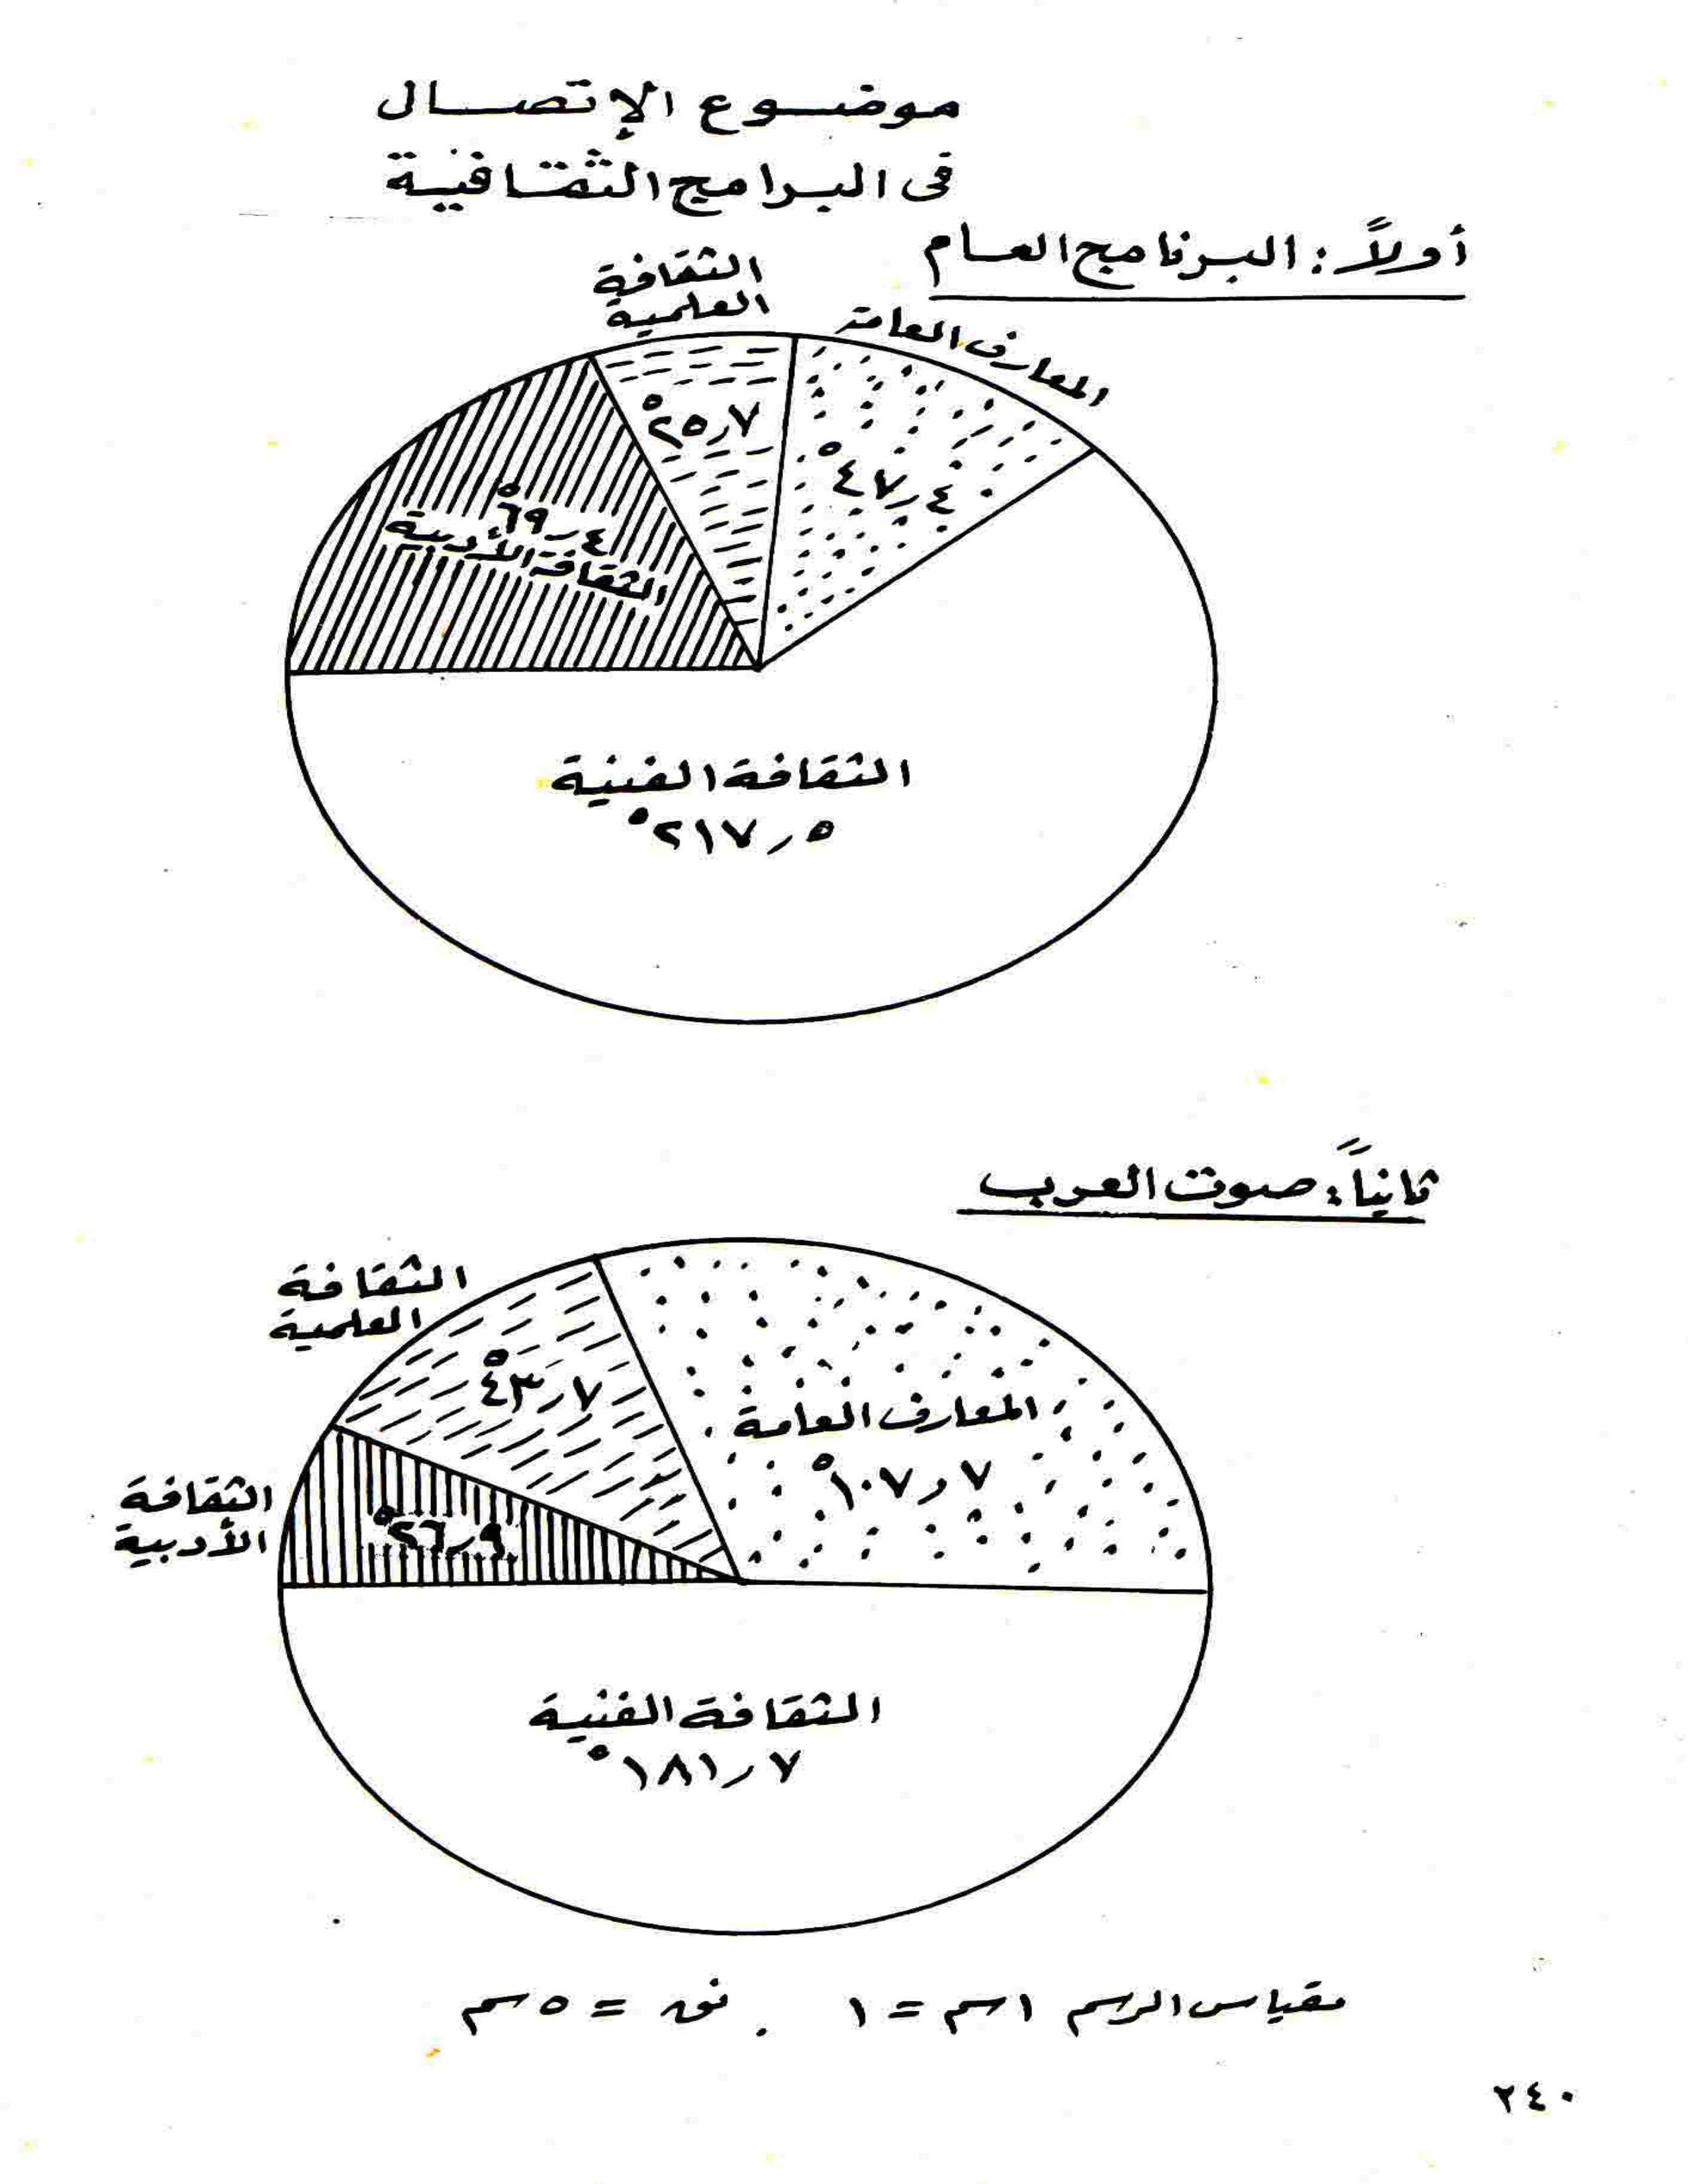 موضوع الإتصال
فى البرامج الثقافية
أولاً : البرنامج العام
الثقافة
العلمية
المعارف العامة
٢٥٫٧°
٤٧٫٤°
٦٩٫٤°
الثقافة الأدبية
الثقافة الفنية
٢١٧٫٥°
ثانياً : صوت العرب
الثقافة
العلمية
٤٣٫٧°
المعارف العامة
١٠٧٫٧°
الثقافة
الأدبية
٢٦٫٩°
الثقافة الفنية
١٨١٫٧°
مقياس الرسم ١سم = ١ . نق = ٥سم
٢٤٠